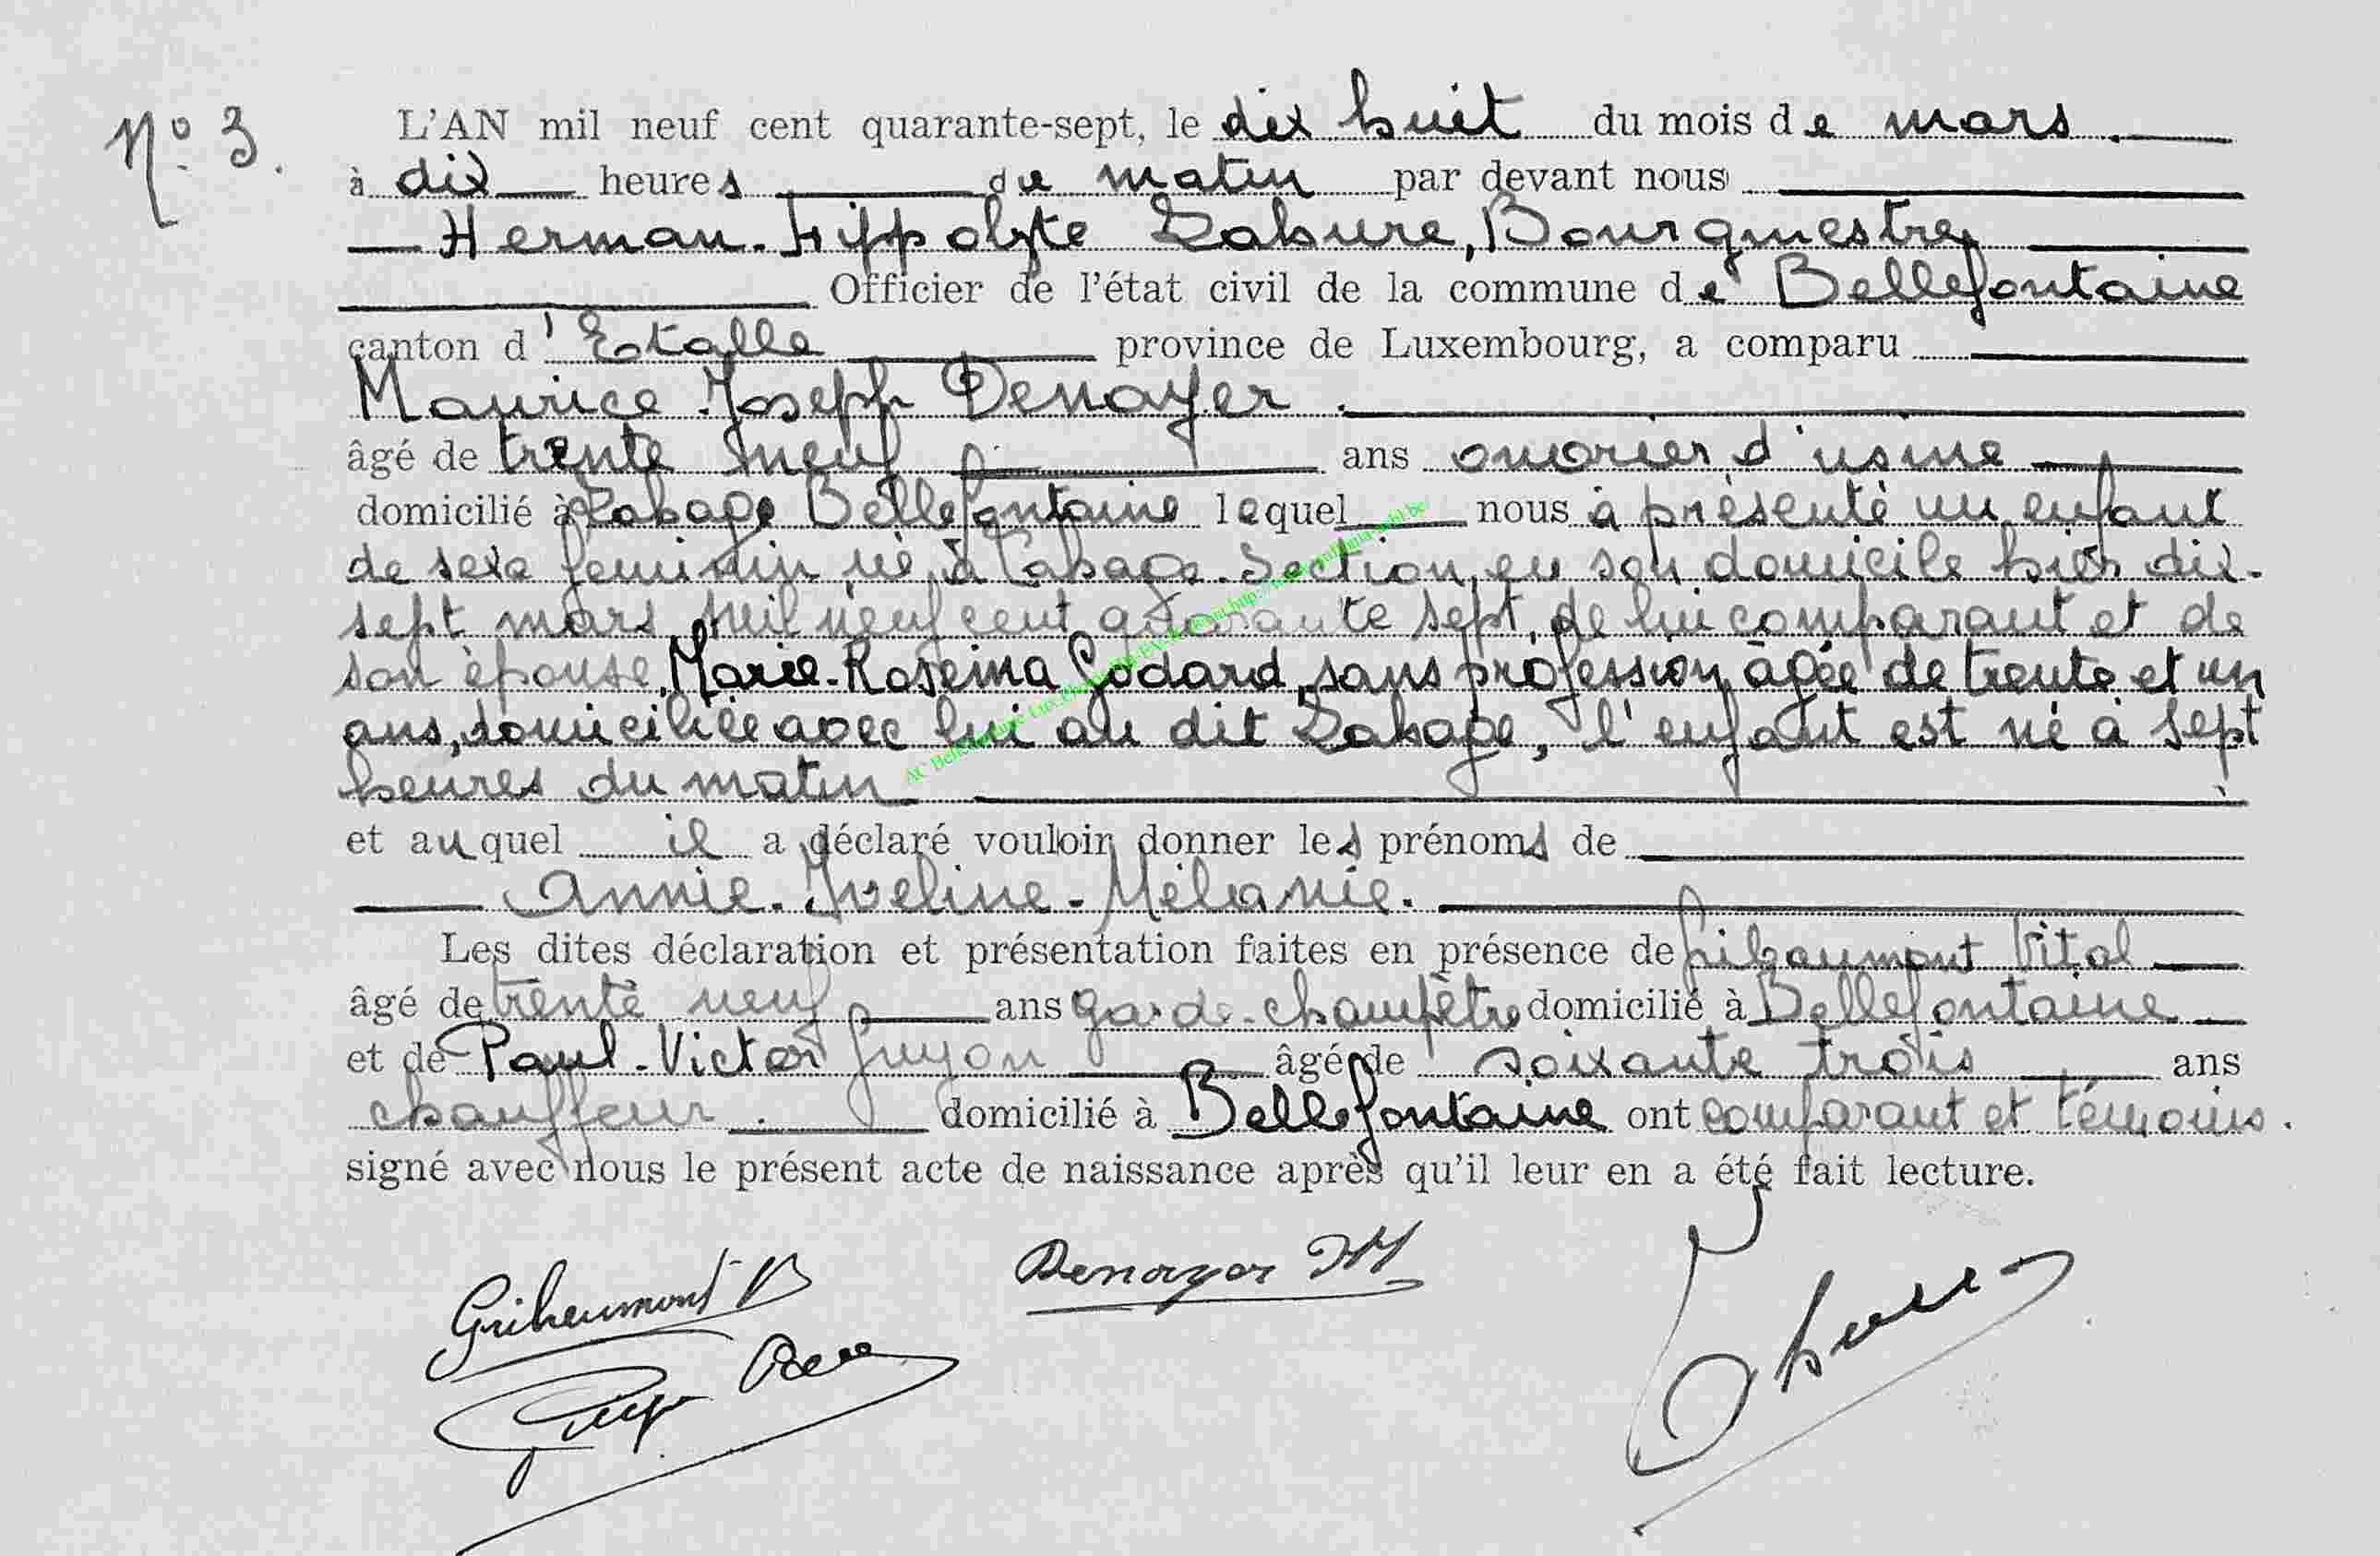 N° 3.
L'AN mil neuf cent quarante-sept, le dix huit du mois de mars.
à dix heures du matin par devant nous
Herman-Hippolyte Lahure, Bourgmestre
Officier de l'état civil de la commune de Bellefontaine
canton d'Etalle province de Luxembourg, a comparu
Maurice Joseph Denayer.
âgé de trente neuf ans ouvrier d'usine
domicilié à Lahage Bellefontaine lequel nous a présenté un enfant
de sexe feminin né à Lahage-Section, en son domicile hier dix-
sept mars mil neuf cent quarante sept, de lui comparant et de
son épouse, Marie-Roseina Godard, sans profession, âgée de trente et un
ans, domiciliée avec lui au dit Lahage, l'enfant est né à sept
heures du matin
et auquel il a déclaré vouloir donner les prénoms de
Annie-Iveline-Mélanie.
Les dites déclaration et présentation faites en présence de Gribaumont Vital
âgé de trente neuf ans garde-champêtre domicilié à Bellefontaine
et de Paul-Victor Guyon âgé de soixante trois ans
chauffeur. domicilié à Bellefontaine ont comparant et témoins.
signé avec nous le présent acte de naissance après qu'il leur en a été fait lecture.
Denayer M